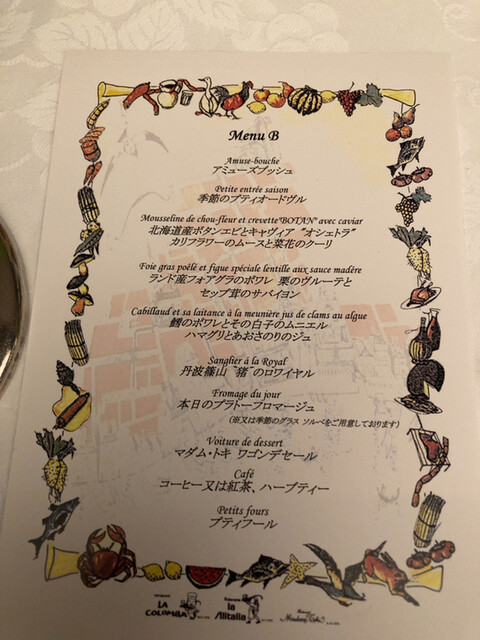 Menu B
Amuse-bouche
アミューズブッシュ
Petite entrée saison
季節のプティオードヴル
Mousseline de chou-fleur et crevette"BOTAN" avec caviar
北海道産ボタンエビとキャヴィア "オシェトラ"
カリフラワーのムースと菜花のクーリ
Foie gras poêlé et figue spéciale lentille aux sauce madère
ランド産フォアグラのポワレ 栗のヴルーテと
セップ茸のサバイヨン
Cabillaud et sa laitance à la meunière jus de clams au algue
鱈のポワレとその白子のムニエル
ハマグリとあおさのりのジュ
Sanglier á la Royal
丹波篠山 "猪"のロワイヤル
Fromage du jour
本日のプラトーフロマージュ
(※又は季節のグラス ソルベをご用意しております)
Voiture de dessert
マダム・トキ ワゴンデセール
Café
コーヒー又は紅茶、ハーブティー
Petits fours
プティフール
LA COLOMBA
la Alitalia
Madame Toki